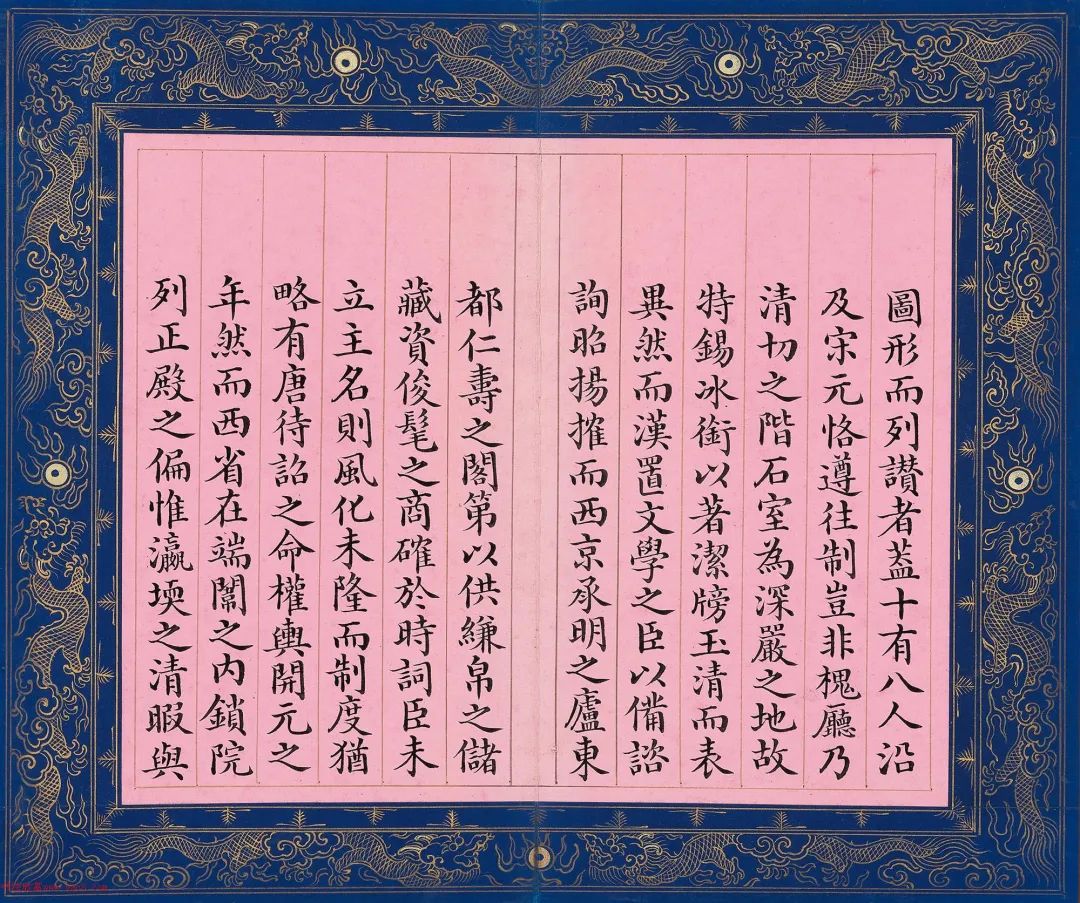 圖形而列讃者葢十有八人沿
及宋元恪遵往制豈非槐廳乃
清切之階石室為深嚴之地故
特錫冰銜以著潔牓玉清而表
異然而漢置文學之臣以備諮
詢昭揚搉而西京承明之廬東
都仁壽之閣第以供縑帛之儲
藏資俊髦之商確於時詞臣未
立主名則風化未隆而制度猶
略有唐待詔之命權輿開元之
年然而西省在端闈之内鎖院
列正殿之偏惟瀛堧之清暇與